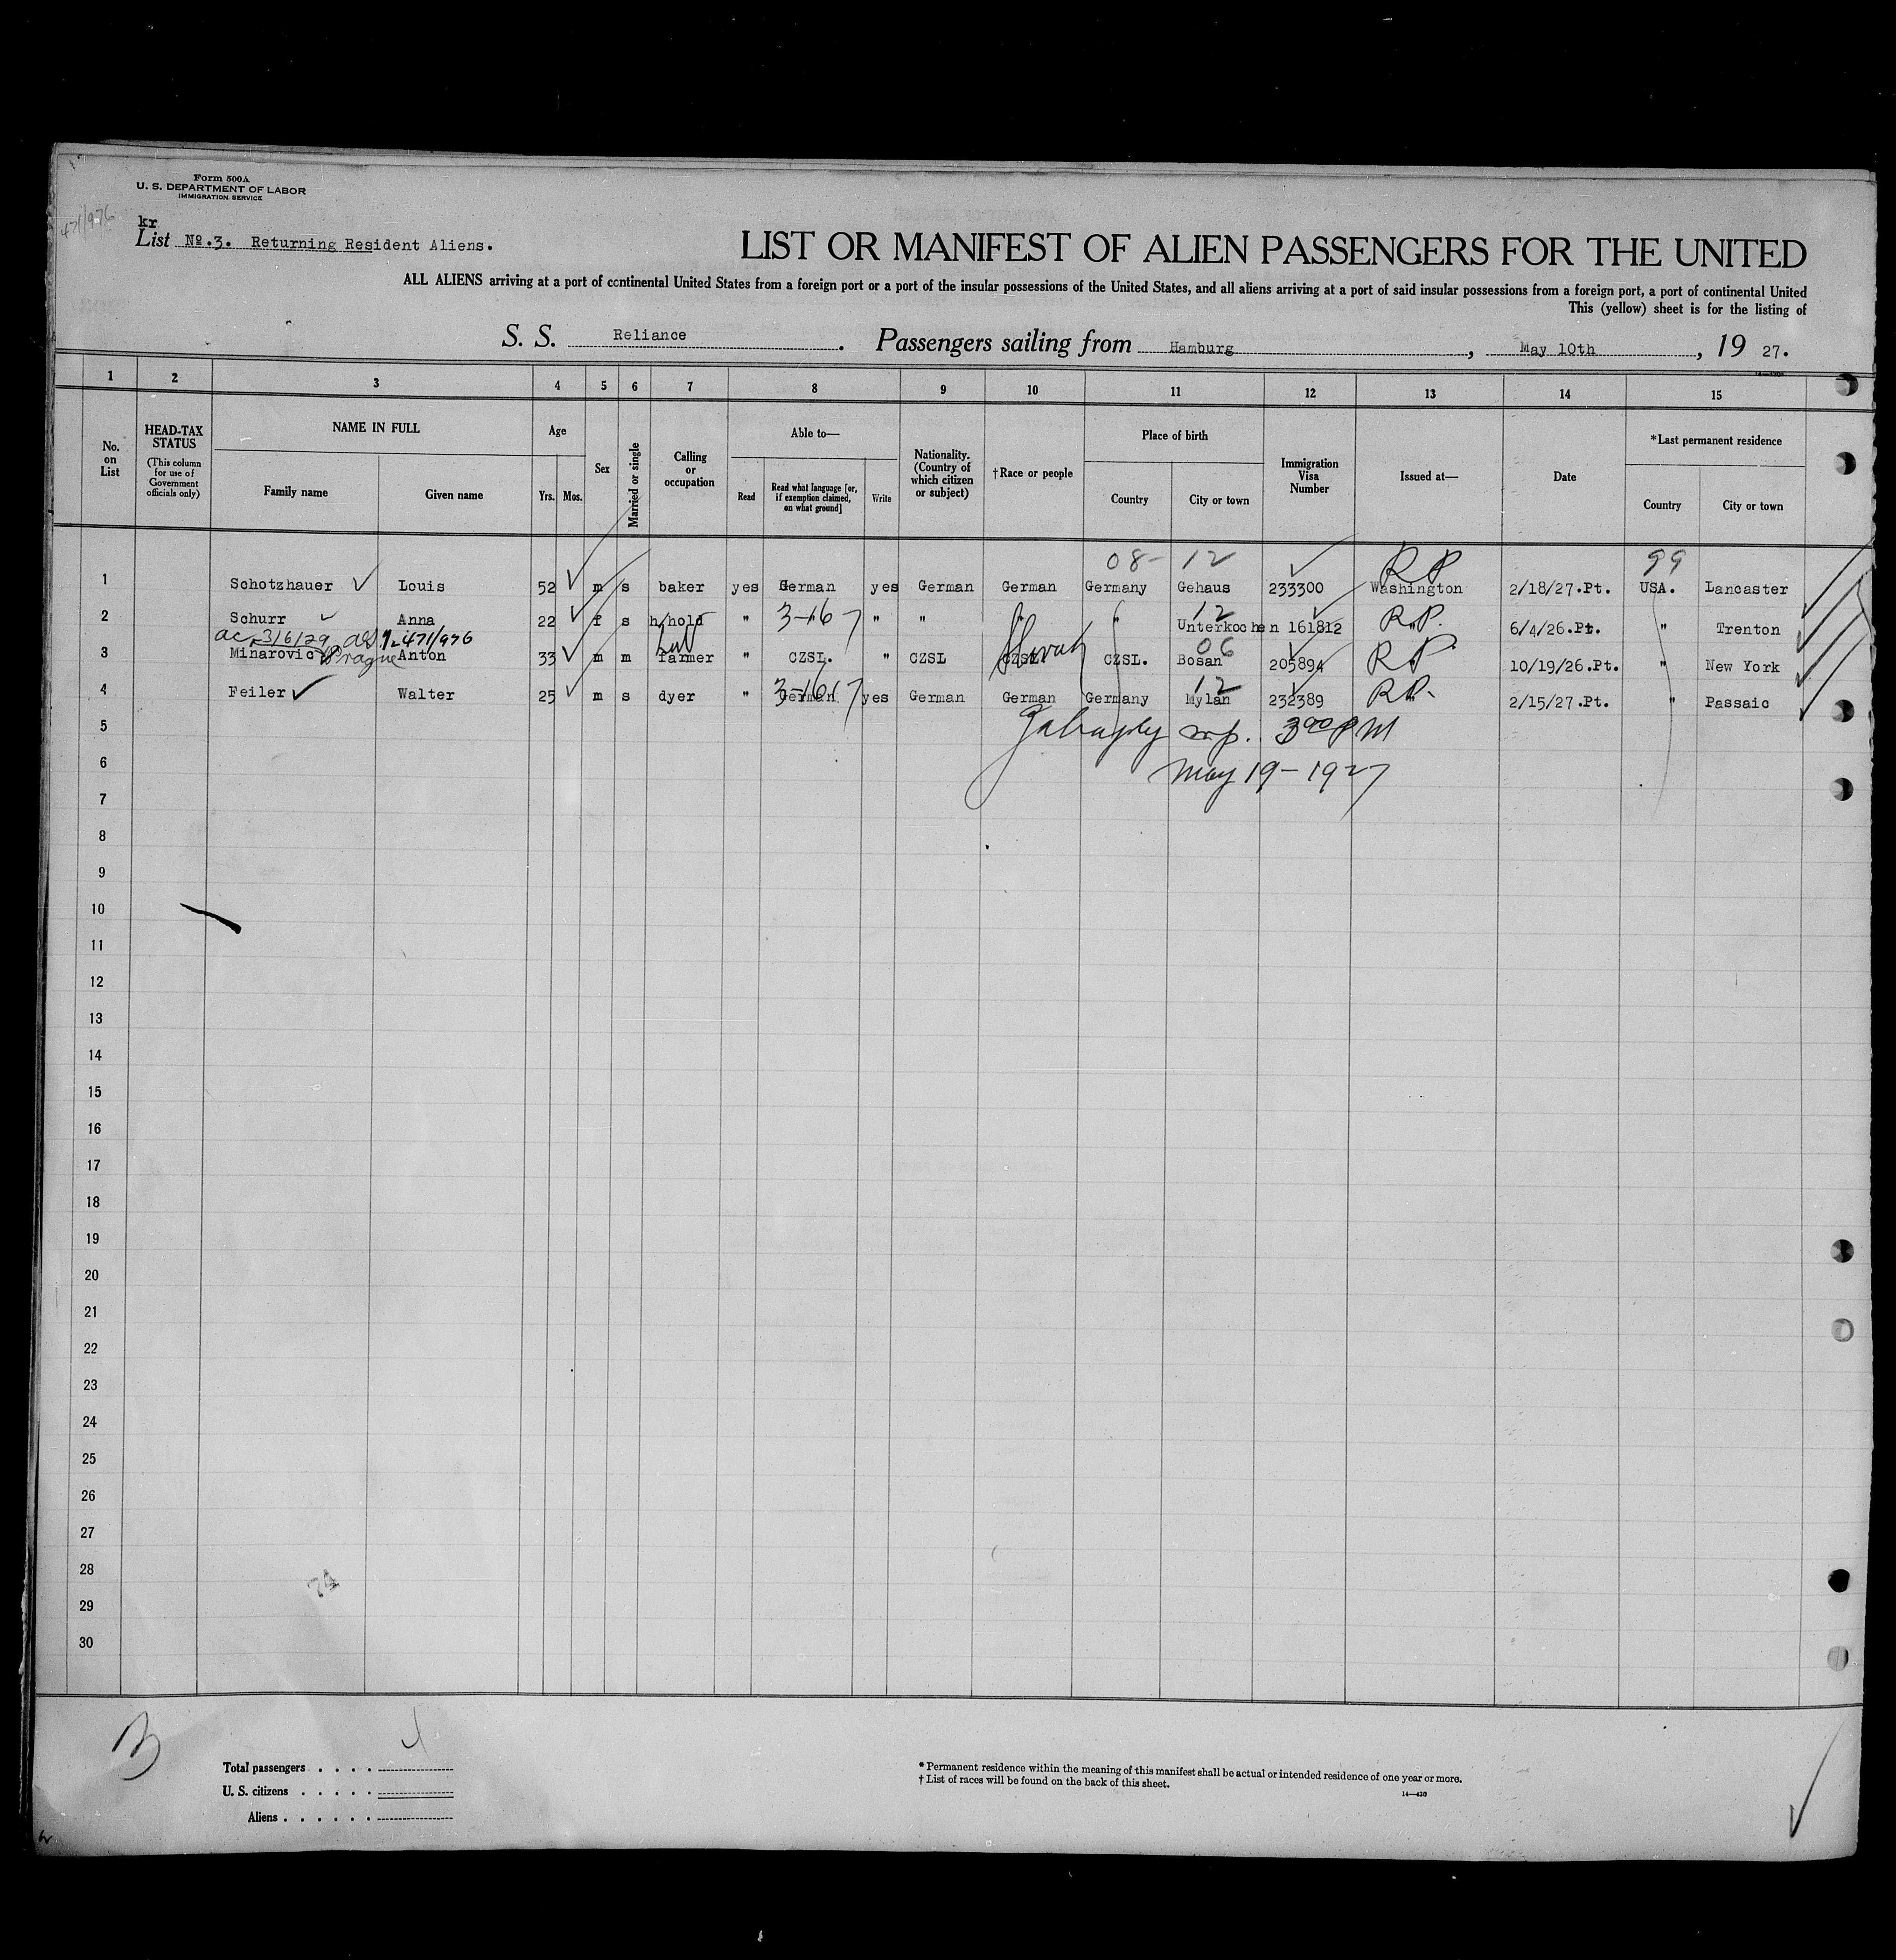 Form 500A
U. S. DEPARTMENT OF LABOR
IMMIGRATION SERVICE
471/976
kr
List No.3. Returning Resident Aliens.
LIST OR MANIFEST OF ALIEN PASSENGERS FOR THE UNITED
ALL ALIENS arriving at a port of continental United States from a foreign port or a port of the insular possessions of the United States, and all aliens arriving at a port of said insular possessions from a foreign port, a port of continental United
This (yellow) sheet is for the listing of
S. S. Reliance. Passengers sailing from Hamburg, May 10th, 19 27.
1 2 3 4 5 6 7 8 9 10 11 12 13 14 15
No. on List
HEAD-TAX STATUS (This column for use of Government officials only)
NAME IN FULL
Family name Given name
Age
Yrs. Mos.
Sex
Married or single
Calling or occupation
Able to—
Read Read what language [or, if exemption claimed, on what ground] Write
Nationality. (Country of which citizen or subject)
†Race or people
Place of birth
Country City or town
Immigration Visa Number
Issued at—
Date
*Last permanent residence
Country City or town
08- 12 RP 99
1 Schotzhauer Louis 52 m s baker yes German yes German German Germany Gehaus 233300 Washington 2/18/27.Pt. USA. Lancaster
3-16 12 R.P.
2 Schurr Anna 22 f s h/hold " " " " " Unterkochen 161812 " 6/4/26.Pt. " Trenton
3/6/29 471/976 Prague 06 RP
3 Minarovic Anton 33 m m farmer " CZSL. " CZSL CZSL. CZSL. Bosan 205894 " 10/19/26.Pt. " New York
3-16 12 RP.
4 Feiler Walter 25 m s dyer " German yes German German Germany Mylan 232389 " 2/15/27.Pt. " Passaic
5 3 00 PM
6 May 19-1927
7
8
9
10
11
12
13
14
15
16
17
18
19
20
21
22
23
24
25
26
27
28
29
30
74
Total passengers . . . .
U. S. citizens . . . . .
Aliens . . . . . .
* Permanent residence within the meaning of this manifest shall be actual or intended residence of one year or more.
† List of races will be found on the back of this sheet.
14—430